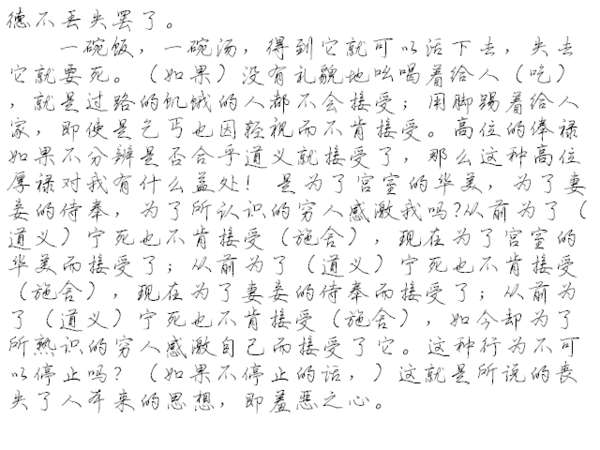 德不丢失罢了。
一碗饭，一碗汤，得到它就可以活下去，失去
它就要死。（如果）没有礼貌地吆喝着给人（吃）
，就是过路的饥饿的人都不会接受；用脚踢着给人
家，即使是乞丐也因轻视而不肯接受。高位的俸禄
如果不分辨是否合乎道义就接受了，那么这种高位
厚禄对我有什么益处！是为了宫室的华美，为了妻
妾的侍奉，为了所认识的穷人感激我吗?从前为了（
道义）宁死也不肯接受（施舍），现在为了宫室的
华美而接受了；从前为了（道义）宁死也不肯接受
（施舍），现在为了妻妾的侍奉而接受了；从前为
了（道义）宁死也不肯接受（施舍），如今却为了
所熟识的穷人感激自己而接受了它。这种行为不可
以停止吗？（如果不停止的话，）这就是所说的丧
失了人本来的思想，即羞恶之心。